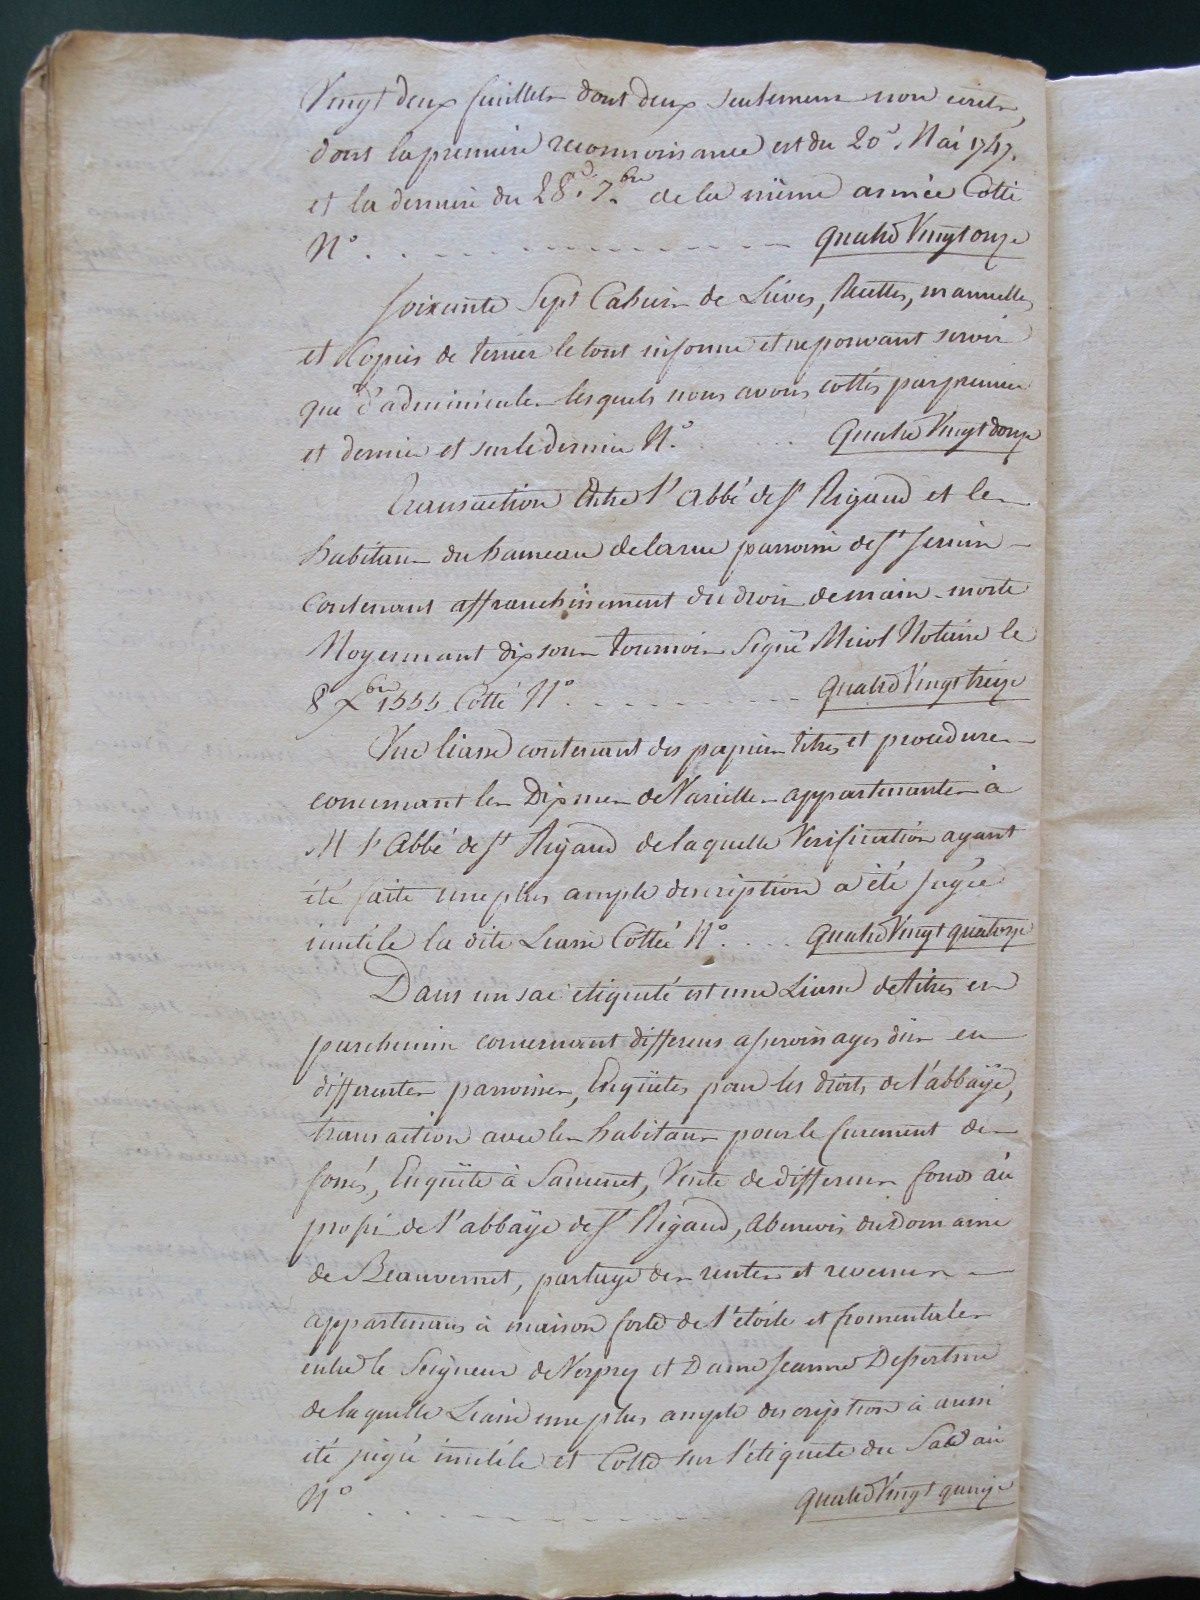 Vingt deux feuillets dont deux seulement non ecrits,
dont la premiere reconnoissance est du 20e. Mai 1747.
et la derniere du 28e. 7.bre de la même année Cotté
N° . . . . . . . . . . . . . Quatre Vingt onze
Soixante Sept Cahiers de Liéves, Recettes, manuelles
et Copies de terrier le tout informe et ne pouvant servir
que d'adminicules lesquels nous avons cottés par premier
et dernier et sur le dernier N.° . . . . Quatre Vingt douze
Transaction Entre l'Abbé de St Rigaud et les
habitans du hameau de la rue parroisse de St
contenant affranchissement du droit de main-morte
Moyennant dix sous tournois Signé Notaire le
8 Xbre 1555 Cotté N° . . . . . . . . . Quatre Vingt treize
Une liasse contenant des papiers titres et procedures
concernant les Dixmes de appartenantes à
M l'Abbé de St Rigaud de laquelle Verification ayant
été faite une plus ample description a été jugée
inutile la dite Liasse Cottée N° . . . . Quatre Vingt quatorze
Dans un sac etiqueté est une Liasse de titres en
parchemin concernant differens asservisages dus en
differentes parroisses, Enquêtes pour les droits de l'abbaÿe,
transaction avec les habitans pour le curement des
fossés, Enquête à Vente de differens fonds au
profit de l'abbaÿe de St Rigaud, abenevis du domaine
de Beauvernet, partage des rentes et revenus
appartenans à maison forte de l'étoile et fromentales
entre le Seigneur de et Dame Jeanne
de laquelle Liasse une plus ample description a aussi
été jugée inutile et Cotté sur l'étiquete du Sac au
N° . . . . . . . . . . . . . Quatre Vingt quinze